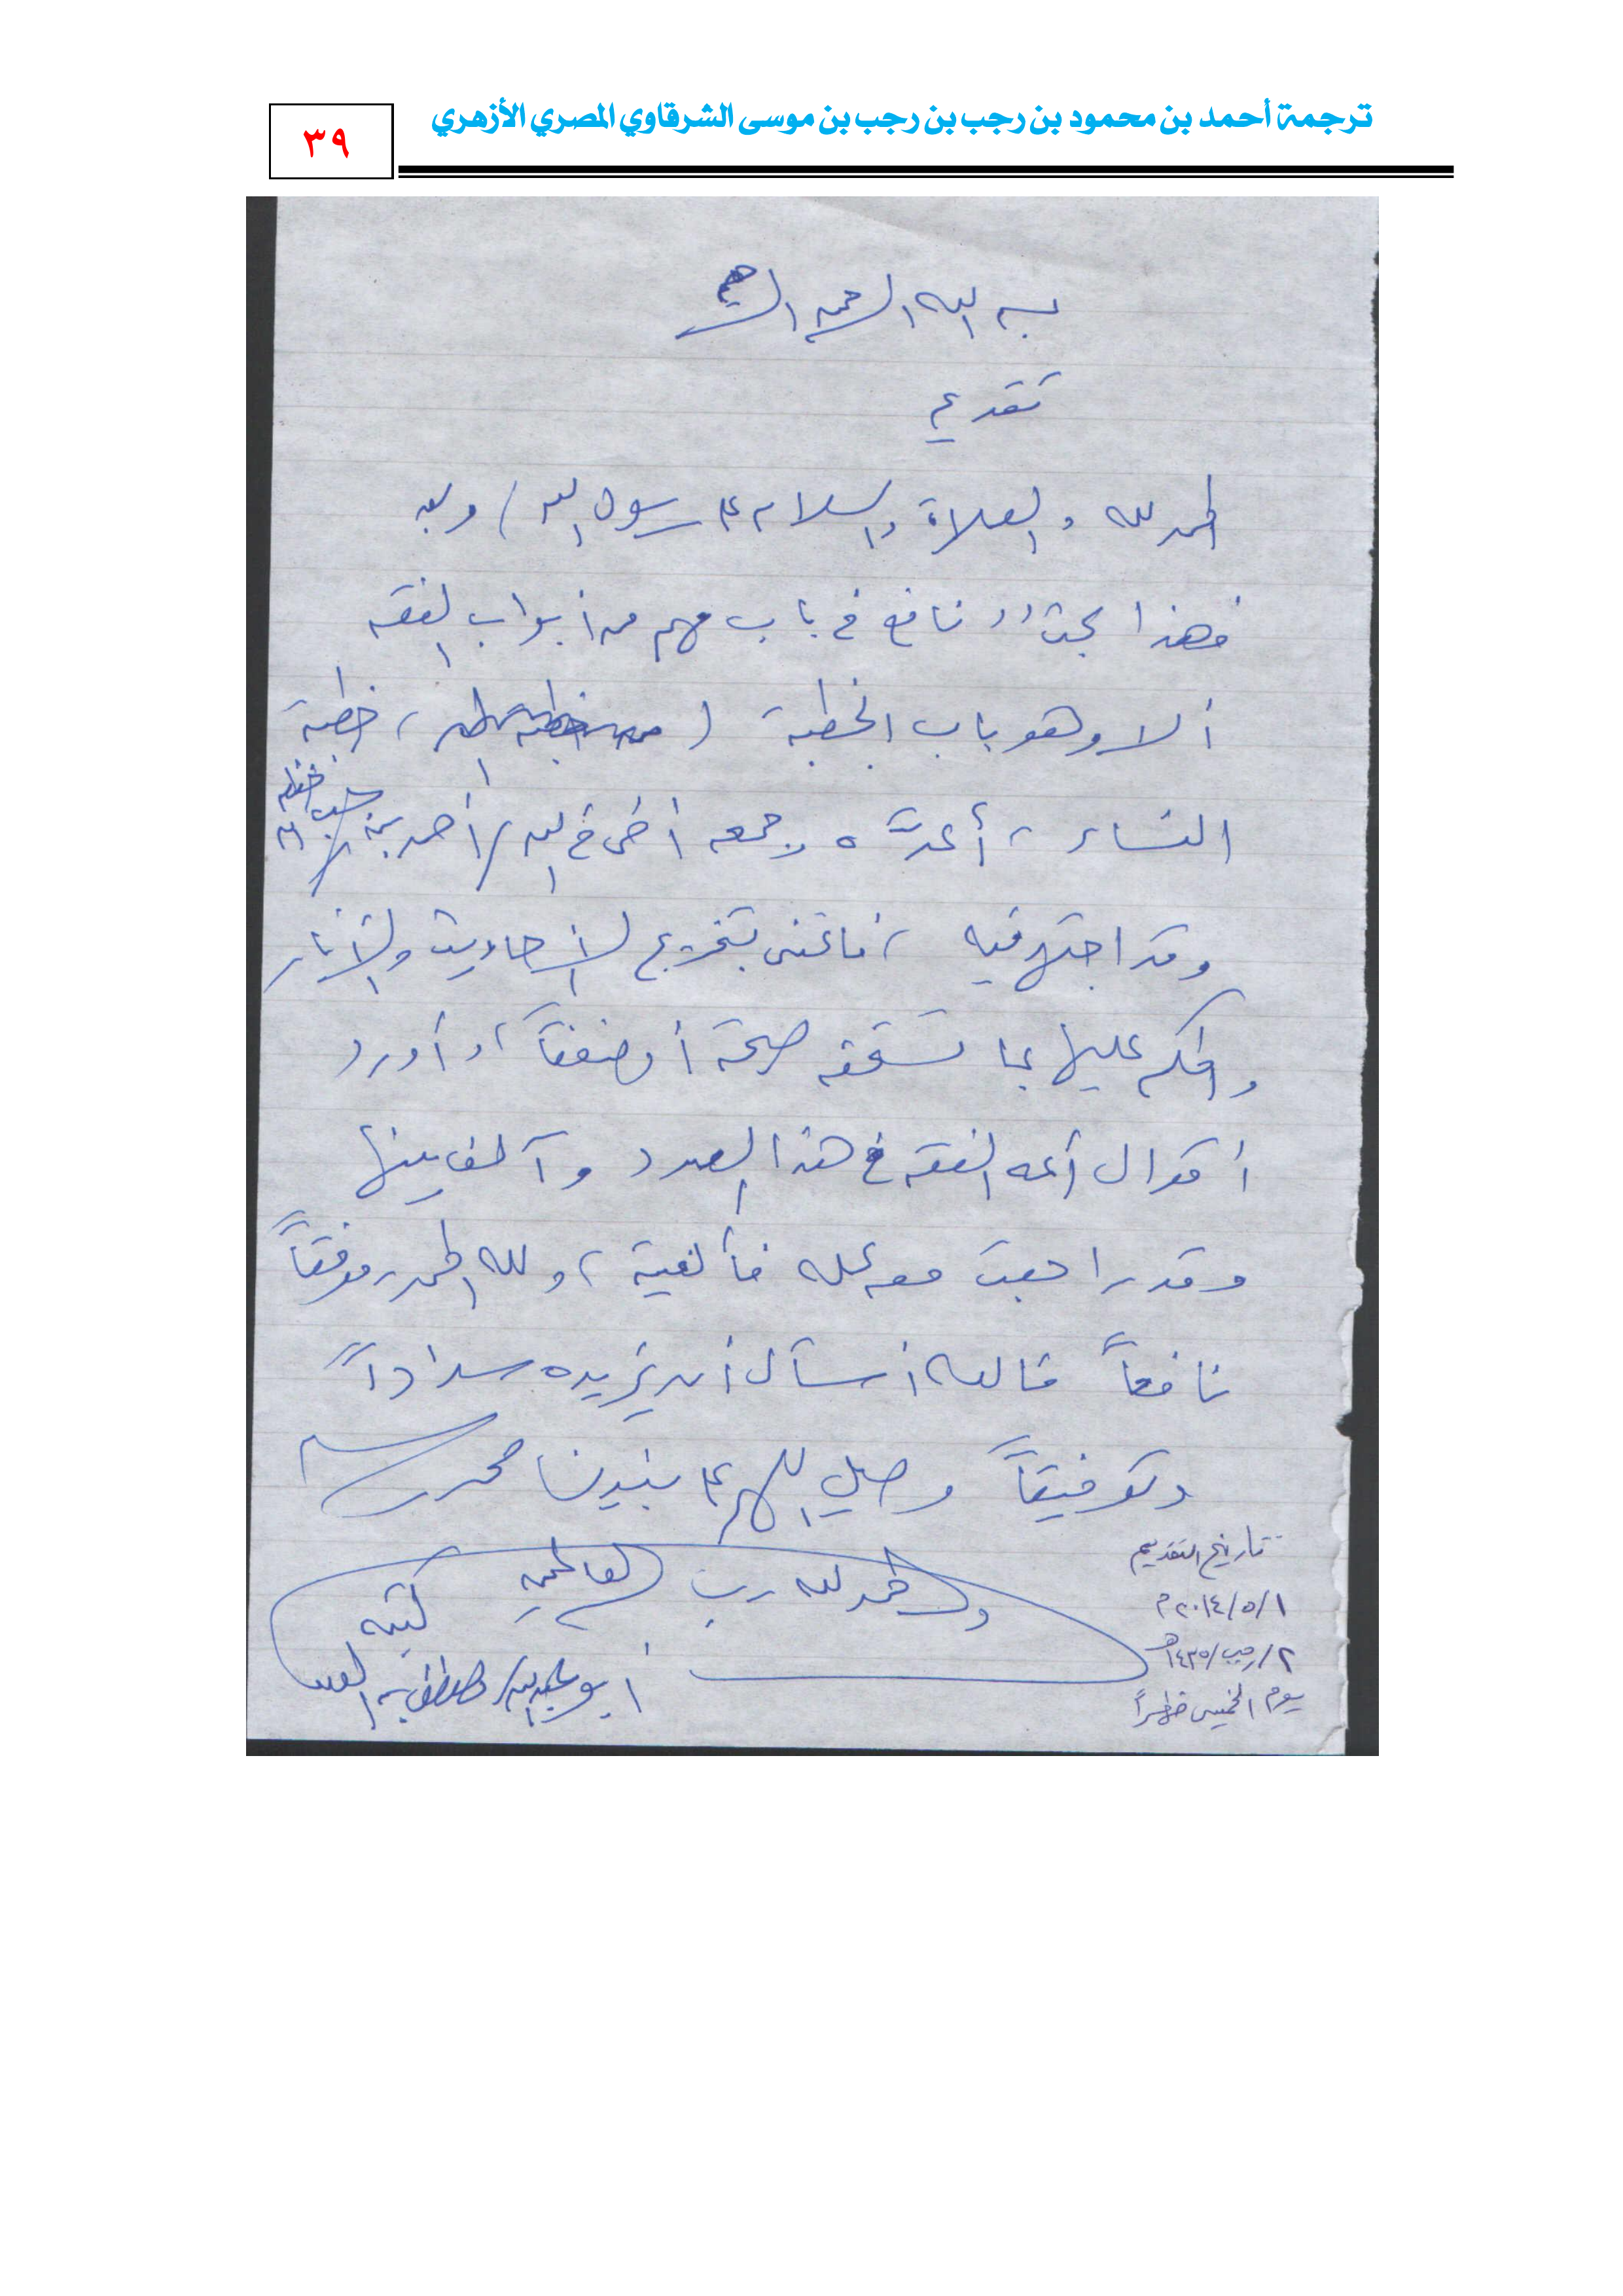 ترجمة أحمد بن محمود بن رجب بن رجب بن موسى الشرقاوي المصري الأزهري
٣٩
بسم الله الرحمن الرحيم
تقديم
الحمد لله والصلاة والسلام على رسول الله / وبعد
فهذا بحث نافع في باب مهم من أبواب الفقه
ألا وهو باب الخطبة ( ، خطبة
النساء ، أعدَّه وجمعه أخي في الله / أحمد بن رجب حفظه الله
وقد اجتهد فيه ، فاعتنى بتخريج الأحاديث والآثار
والحكم عليها بما تستحقه صحة أو ضعفاً ، وأورد
أقوال أئمة الفقه في هذا الصدد وآلف بينها
وقد راجعت معه عمله فألفيته ، ولله الحمد موفقاً
نافعاً فالله أسأل أن يزيده سداداً
وتوفيقاً وصلي اللهم على نبينا محمد وسلم
والحمد لله رب العالمين
كتبه
أبو عبد الله / مصطفى بن العدوي
تاريخ التقديم
١ / ٥ / ٢٠١٤ م
٢ / رجب / ١٤٣٥ هـ
يوم الخميس ظهراً